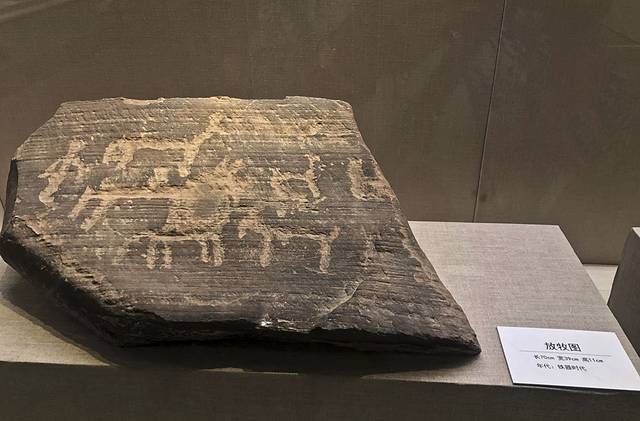 放牧图
长70cm 宽39cm 高11cm
年代：铁器时代